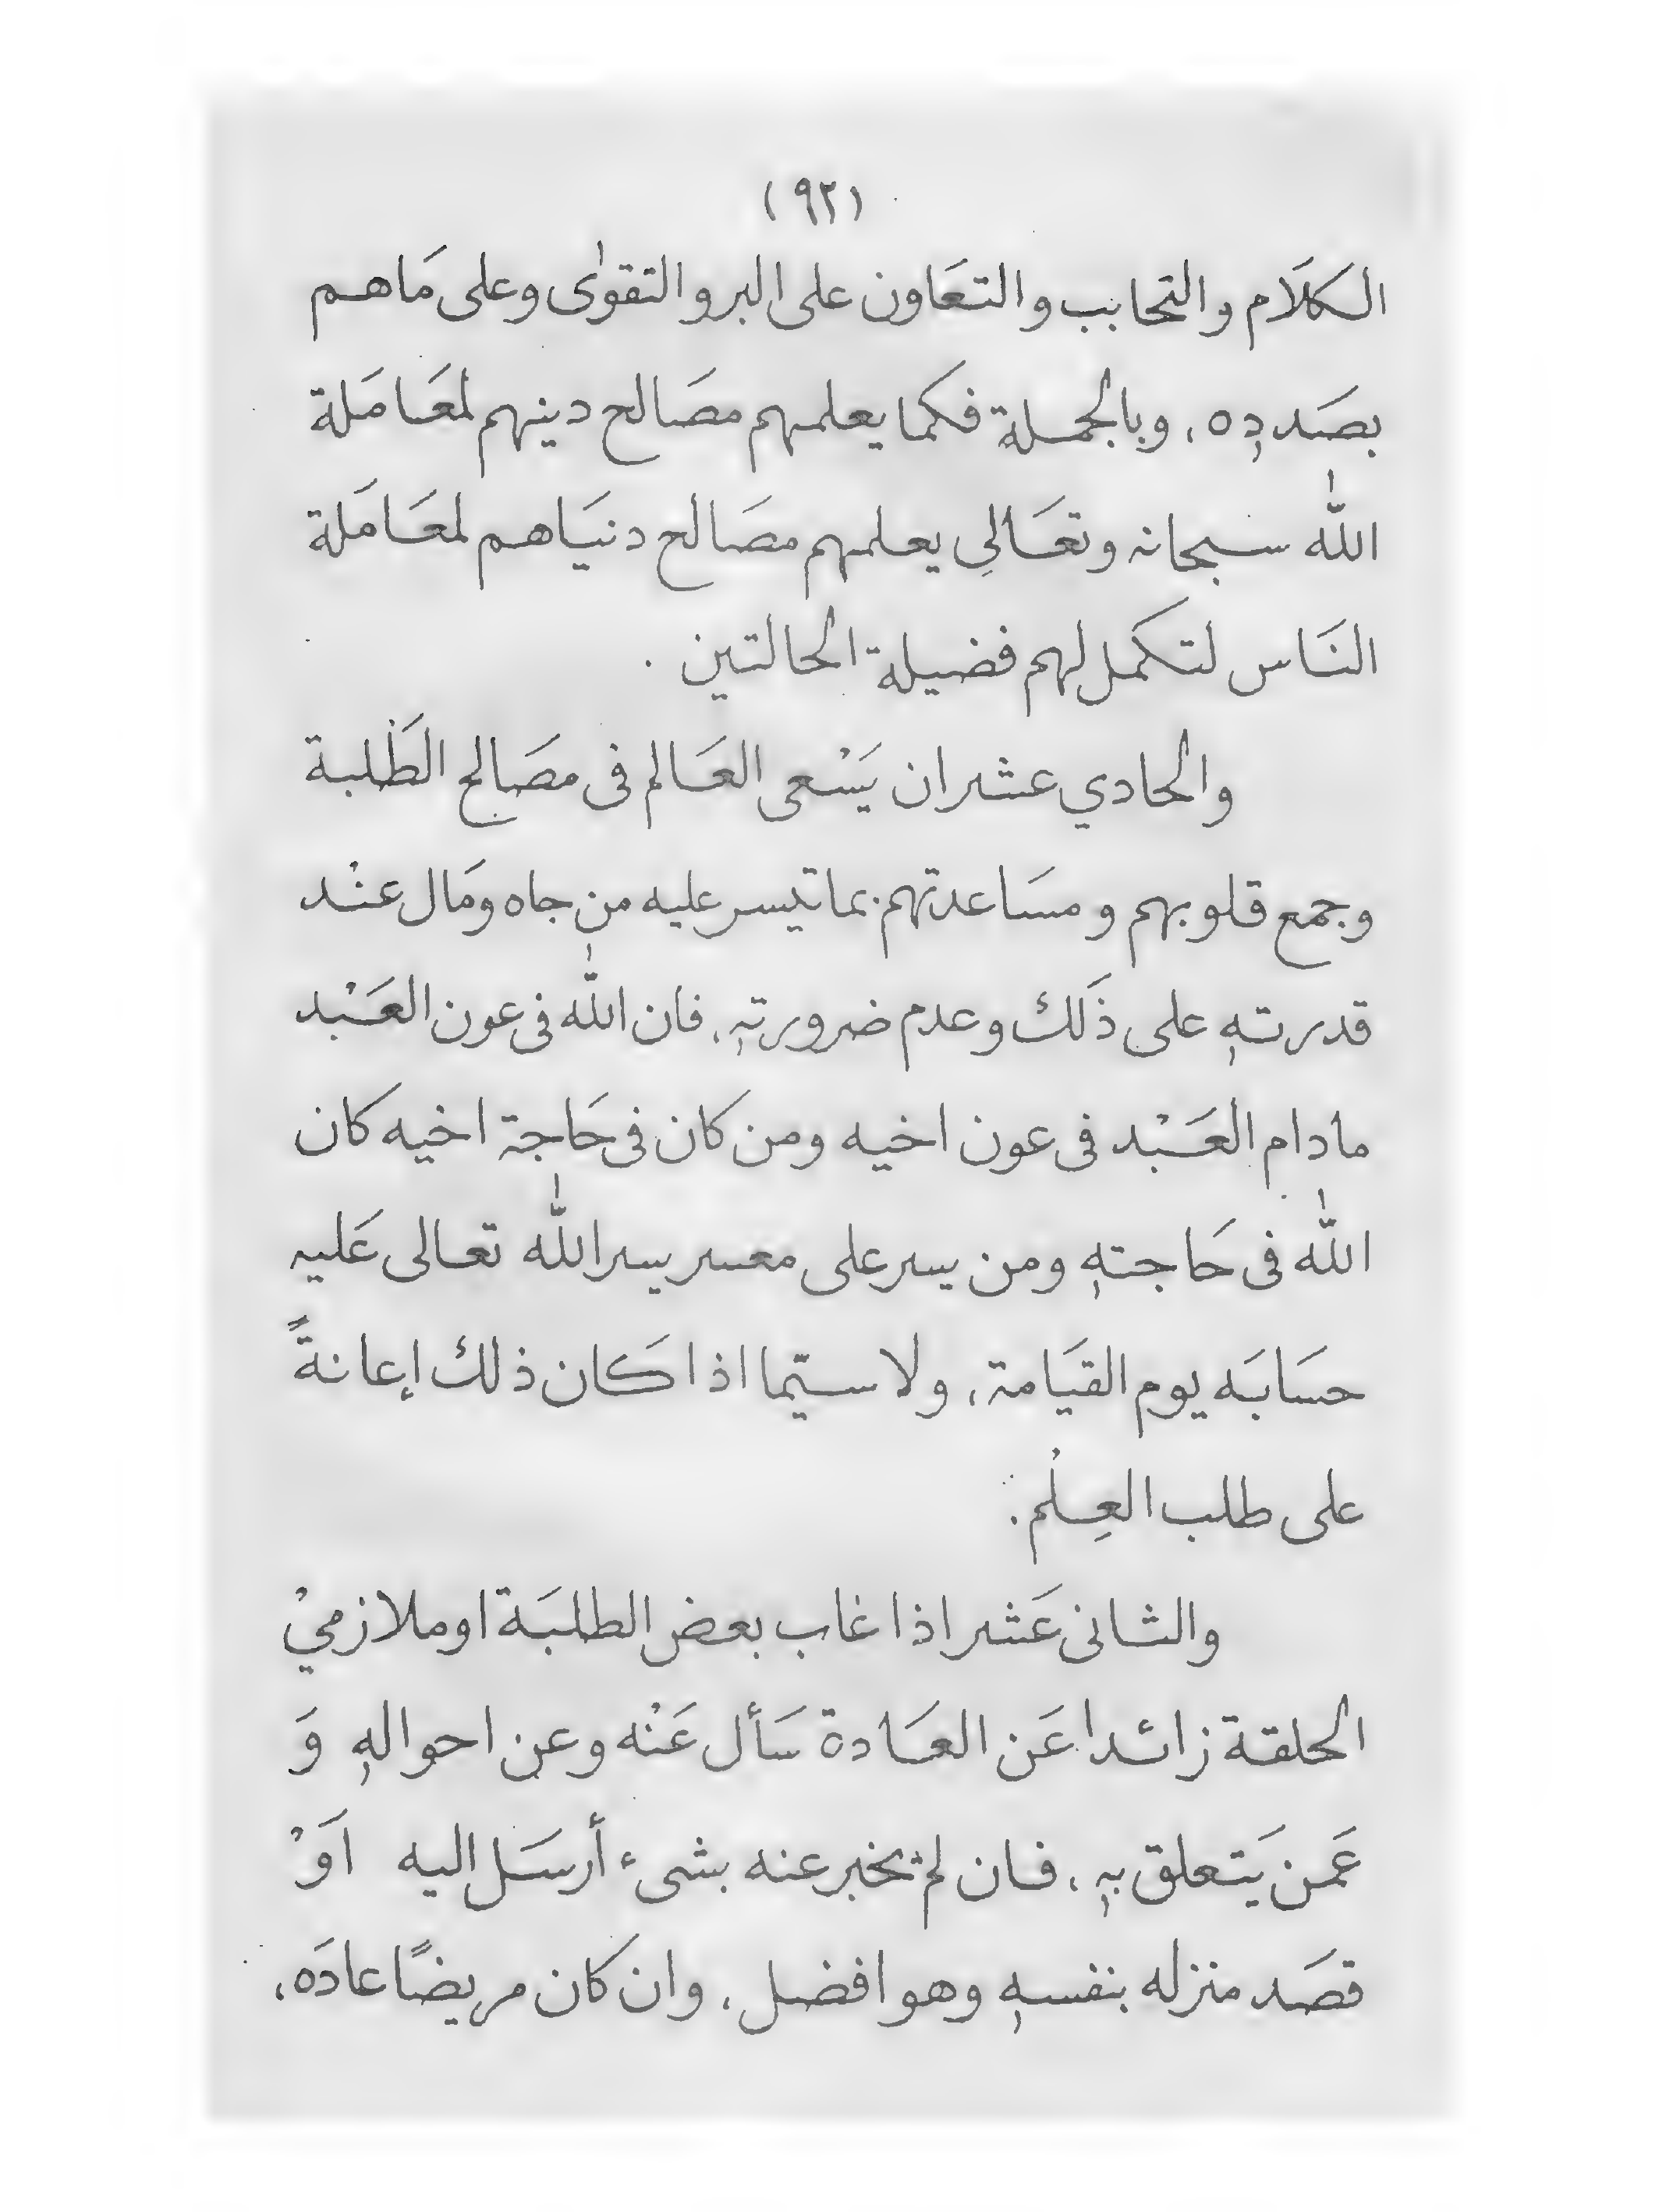 (٩٢)
الكلَام والتحابب والتعَاون على البر والتقوٰى وعلى مَاهم
بصَددِه، وبالجملة فكما يعلمهم مصَالح دينهم لمعَامَلة
اللّٰه سبحانه وتعَالىِ يعلمهم مصَالح دنيَاهم لمعَامَلة
النَاس لتكمل لهم فضيلة الحالتين .
والحادي عشر ان يَسْعى العَالم فى مصَالح الطَلبة
وجمع قلوبهم ومسَاعدتهم بما تيسر عليه من جاه ومَال عنْد
قدرتهٖ على ذَلك وعدم ضرورتهٖ، فان اللّٰه فى عون العَبْد
مادام العَبْد فى عون اخيه ومن كان فى حَاجة اخيه كان
اللّٰه فى حَاجتهٖ ومن يسر على معسر يسر اللّٰه تعالى عَليه
حسَابَه يوم القيَامة، ولا سيّما اذا كَان ذلك إعانةً
على طلب العِلْم.
والثانى عَشر اذا غاب بعض الطلبَة او ملازميْ
الحلقة زائدا عَن العَادة سَأل عَنْه وعن احوالهٖ وَ
عَمن يَتعلق بهٖ، فان لمْ يخبر عنه بشىء أرسَل اليه اَوْ
قصَد منزله بنفسهٖ وهو افضل، وان كان مريضًا عادَه،